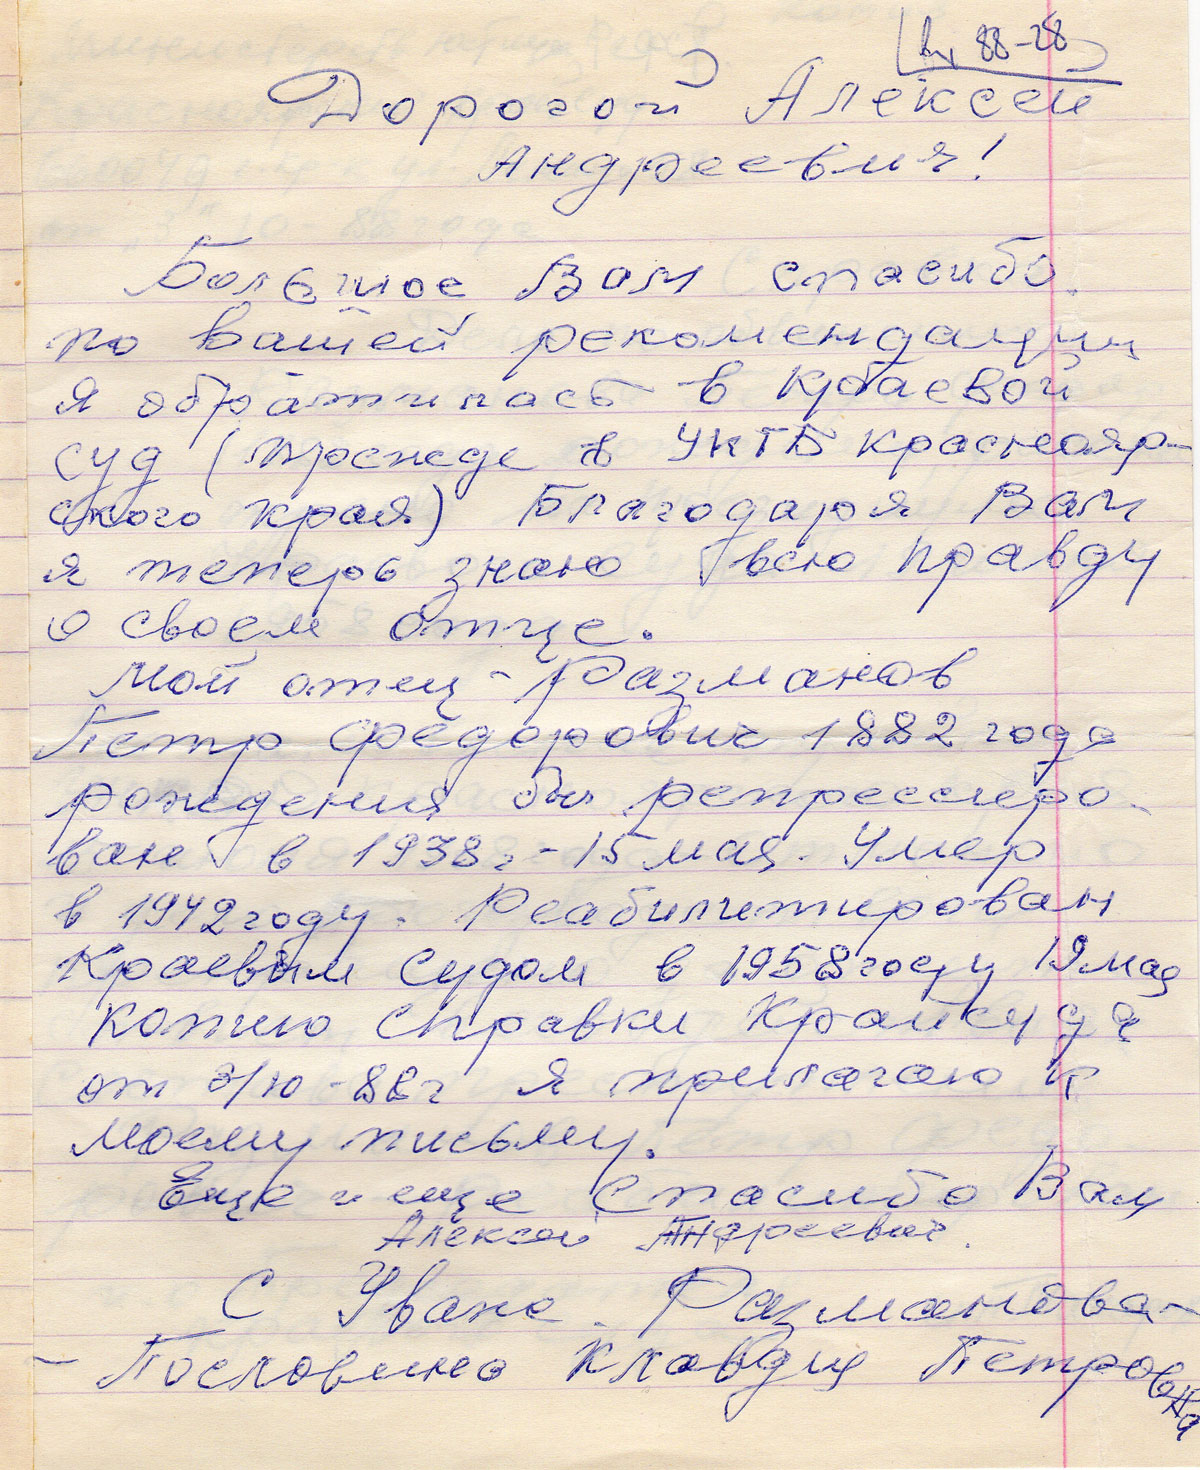 88-28
Дорогой Алексей
Андреевич!
Большое Вам спасибо.
по вашей рекомендации
я обратилась в Краевой
суд (прежде в УКГБ Краснояр-
ского края) Благодаря Вам
я теперь знаю всю правду
о своем отце.
Мой отец - Разманов
Петр Федорович 1882 года
рождения был репрессиро-
ван в 1938 г - 15 мая. Умер
в 1942 году. Реабилитирован
Краевым судом в 1958 году 19 мая
Копию справки Крайсуда
от 3/10 - 88 г я прилагаю к
моему письму.
Еще и еще спасибо Вам
Алексей Андреевич.
С Уваж. Разманова-
- Клавдия Петровна